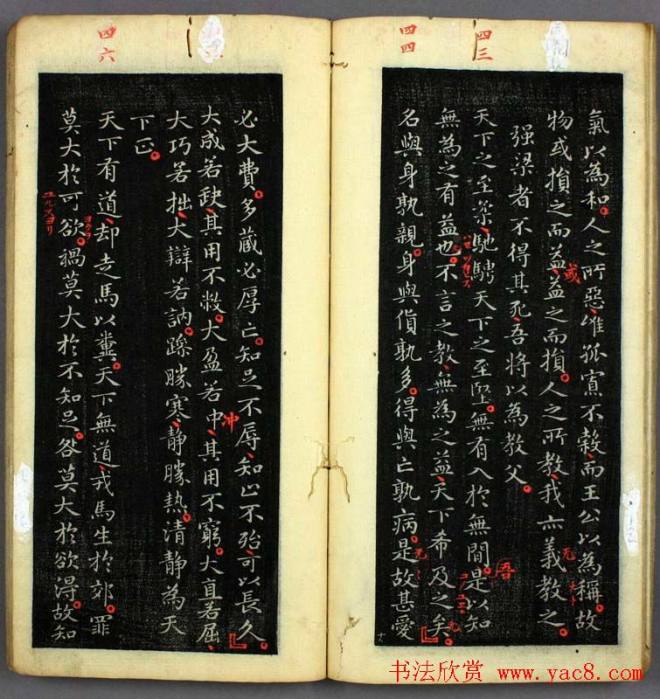 四三
四四
氣以為和人之所惡唯孤寡不穀而王公以為稱故
物或損之而益益之而損人之所教我亦義教之
强梁者不得其死吾將以為教父
天下之至柔馳騁天下之至堅無有入於無間是以知
吾
無為之有益也不言之教無為之益天下希及之矣
名與身孰親身與貨孰多得與亡孰病是故甚愛
四六
必大費多藏必厚亡知足不辱知止不殆可以長久
大成若缺其用不敝大盈若中其用不窮大直若屈
冲
大巧若拙大辯若訥躁勝寒靜勝熱清靜為天
下正
天下有道却走馬以糞天下無道戎馬生於郊罪
莫大於可欲禍莫大於不知足咎莫大於欲得故知
书法欣赏 www.yac8.com